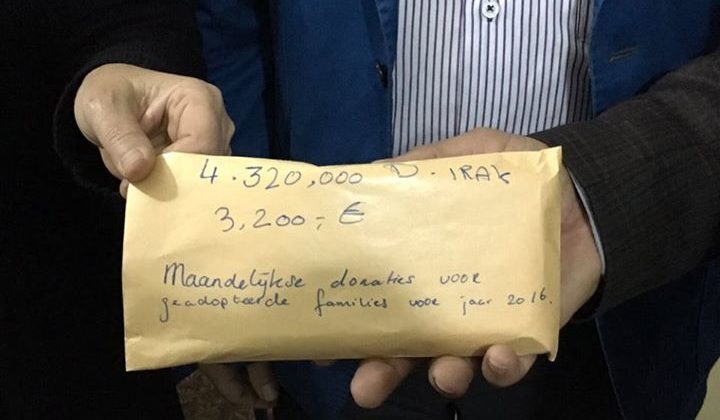 4.320,000 D. IRAK
3,200,- €
Maandelijkse donaties voor
geadopteerde families voor jaar 2016.